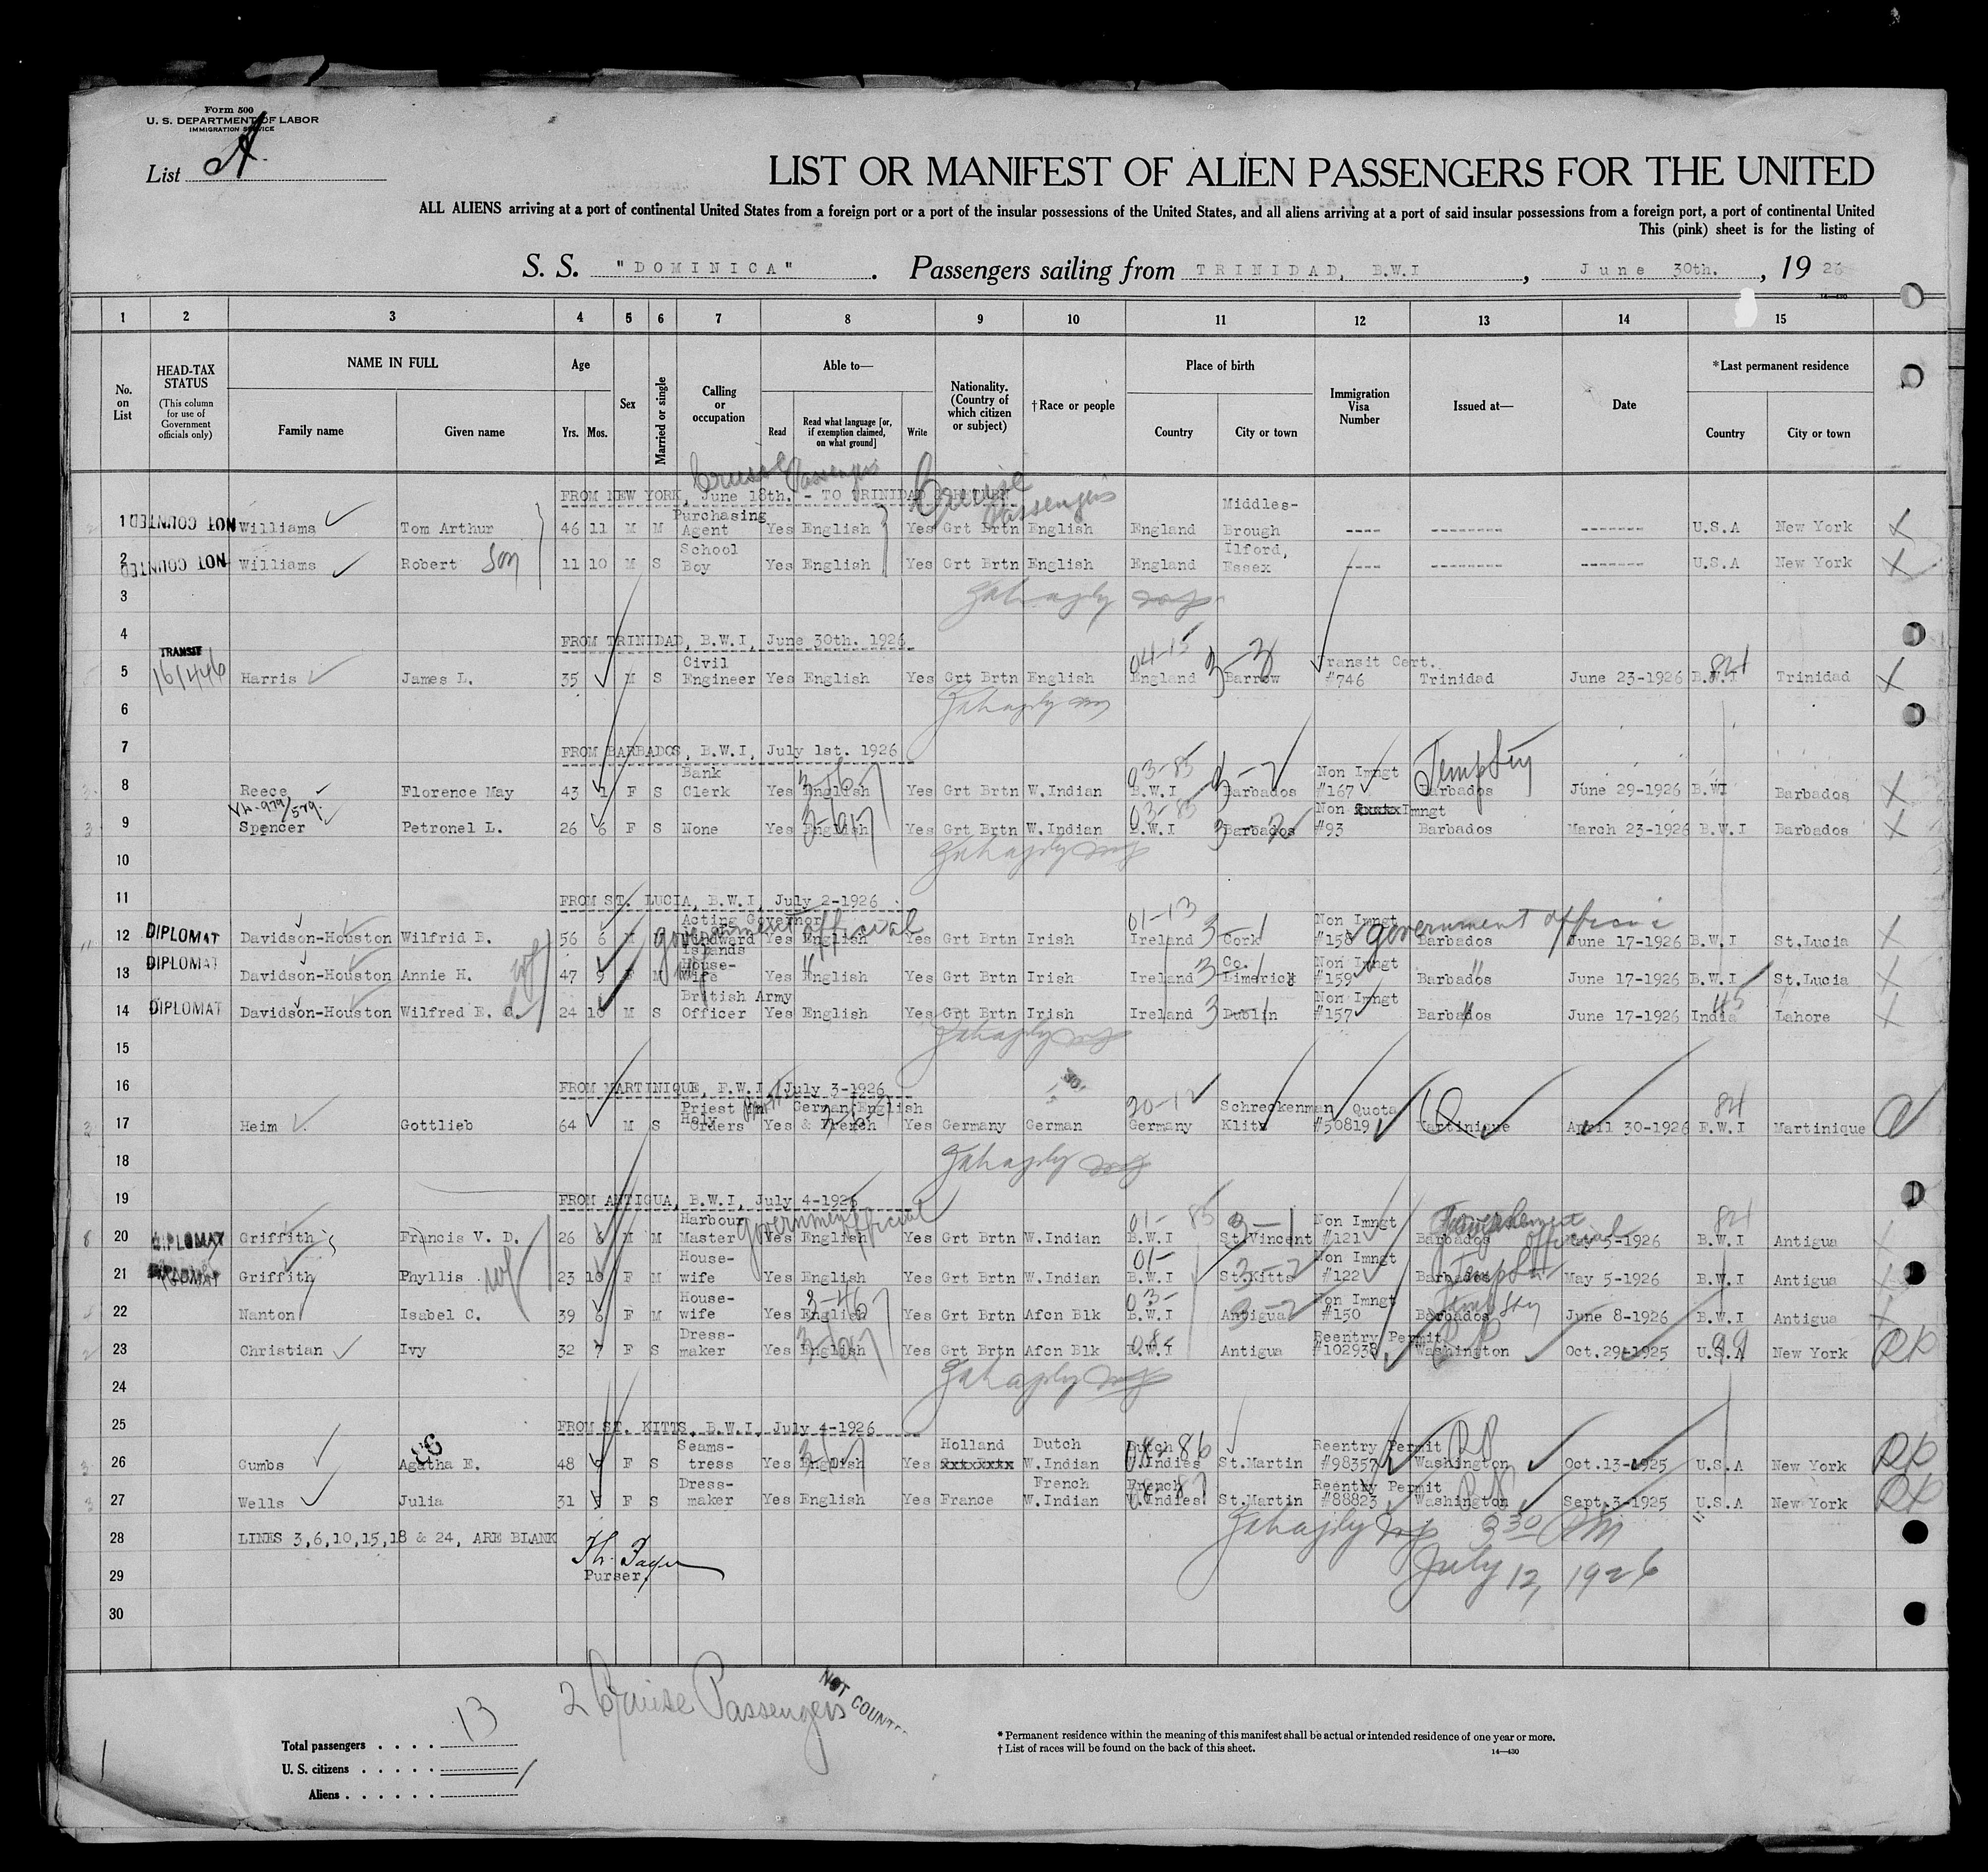 Form 500
U. S. DEPARTMENT OF LABOR
IMMIGRATION SERVICE
List A.
LIST OR MANIFEST OF ALIEN PASSENGERS FOR THE UNITED
ALL ALIENS arriving at a port of continental United States from a foreign port or a port of the insular possessions of the United States, and all aliens arriving at a port of said insular possessions from a foreign port, a port of continental United
This (pink) sheet is for the listing of
S. S. "DOMINICA" . Passengers sailing from TRINIDAD, B.W.I , June 30th. , 19 26
14—430
1 2 3 4 5 6 7 8 9 10 11 12 13 14 15
No. on List
HEAD-TAX STATUS (This column for use of Government officials only)
NAME IN FULL
Family name
Given name
Age
Yrs. Mos.
Sex
Married or single
Calling or occupation
Able to—
Read
Read what language [or, if exemption claimed, on what ground]
Write
Nationality. (Country of which citizen or subject)
† Race or people
Place of birth
Country
City or town
Immigration Visa Number
Issued at—
Date
*Last permanent residence
Country
City or town
Cruise Passengers
FROM NEW YORK, June 18th. - TO TRINIDAD & RETURN
Cruise Passengers
1 NOT COUNTED Williams Tom Arthur 46 11 M M Purchasing Agent Yes English Yes Grt Brtn English England Middles-Brough ---- -------- ------- U.S.A New York
2 NOT COUNTED Williams Robert Son 11 10 M S School Boy Yes English Yes Grt Brtn English England Ilford, Essex ---- -------- ------- U.S.A New York
3
4 FROM TRINIDAD, B.W.I, June 30th. 1926
TRANSIT
04-15 3-3 84
5 161446 Harris James L. 35 M S Civil Engineer Yes English Yes Grt Brtn English England Barrow Transit Cert. #746 Trinidad June 23-1926 B.W.I Trinidad
6
7 FROM BARBADOS, B.W.I, July 1st. 1926
03-85 3-2
8 Reece Florence May 43 1 F S Bank Clerk Yes English Yes Grt Brtn W.Indian B.W.I Barbados Non Immgt #167 Barbados June 29-1926 B.WI Barbados
03-85
9 Spencer Petronel L. 26 6 F S None Yes English Yes Grt Brtn W.Indian B.W.I Barbados Non Immgt #93 Barbados March 23-1926 B.W.I Barbados
10
11 FROM ST. LUCIA, B.W.I, July 2-1926
01-13
government official
government official
12 DIPLOMAT Davidson-Houston Wilfrid B. 56 6 M M Acting Governor Windward Islands Yes English Yes Grt Brtn Irish Ireland Cork Non Imngt #158 Barbados June 17-1926 B.W.I St.Lucia
13 DIPLOMAT Davidson-Houston Annie H. wf 47 9 F M House-wife Yes English Yes Grt Brtn Irish Ireland Co. Limerick Non Imngt #159 Barbados June 17-1926 B.W.I St.Lucia
45
14 DIPLOMAT Davidson-Houston Wilfred E. C. 24 10 M S British Army Officer Yes English Yes Grt Brtn Irish Ireland Dublin Non Imngt #157 Barbados June 17-1926 India Lahore
15
16 FROM MARTINIQUE, F.W.I, July 3-1926
20-12 84
17 Heim Gottlieb 64 M S Priest in Holy Orders Yes German English & French Yes Germany German Germany Schreckenman Klitz Quota #50819 Martinique April 30-1926 F.W.I Martinique
18
19 FROM ANTIGUA, B.W.I, July 4-1926
01- 85 3-1 84
government official
Government Official
20 DIPLOMAT Griffith Francis V. D. 26 6 M M Harbour Master Yes English Yes Grt Brtn W.Indian B.W.I St.Vincent Non Imngt #121 Barbados May 5-1926 B.W.I Antigua
01- 3-2
21 DIPLOMAT Griffith Phyllis wf 23 10 F M House-wife Yes English Yes Grt Brtn W.Indian B.W.I St.Kitts Non Imngt #122 Barbados May 5-1926 B.W.I Antigua
03- 3-2
22 Nanton Isabel C. 39 6 F M House-wife Yes English Yes Grt Brtn Afcn Blk B.W.I Antigua Non Imngt #150 Barbados June 8-1926 B.W.I Antigua
08- RP 99
23 Christian Ivy 32 7 F S Dress-maker Yes English Yes Grt Brtn Afcn Blk B.W.I Antigua Reentry Permit #102938 Washington Oct.29-1925 U.S.A New York RP
24
25 FROM ST. KITTS, B.W.I, July 4-1926
08-86 RP
26 Gumbs Agatha E. 48 9 F S Seams-tress Yes English Yes Holland Dutch W.Indian Dutch W.Indies St.Martin Reentry Permit #98357 Washington Oct.13-1925 U.S.A New York RP
08-87 RP
27 Wells Julia 31 F S Dress-maker Yes English Yes France French W.Indian French W.Indies St.Martin Reentry Permit #88823 Washington Sept.3-1925 U.S.A New York RP
28 LINES 3,6,10,15,18 & 24, ARE BLANK
330 PM
29 Purser. July 12, 1926
30
2 Cruise Passengers NOT COUNT
Total passengers . . . . 13
U. S. citizens . . . . .
Aliens . . . . . .
* Permanent residence within the meaning of this manifest shall be actual or intended residence of one year or more.
† List of races will be found on the back of this sheet.
14—430